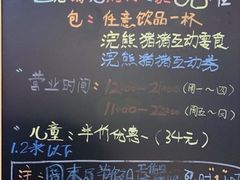 包：任意饮品一杯
浣熊猪猪互动零食
浣熊猪猪互动券
营业时间：12:00-21:00 (周一~四)
11:00-22:00 (周五~日)
儿童：半价优惠-(34元)
1.2米以下
注：周末及节假日